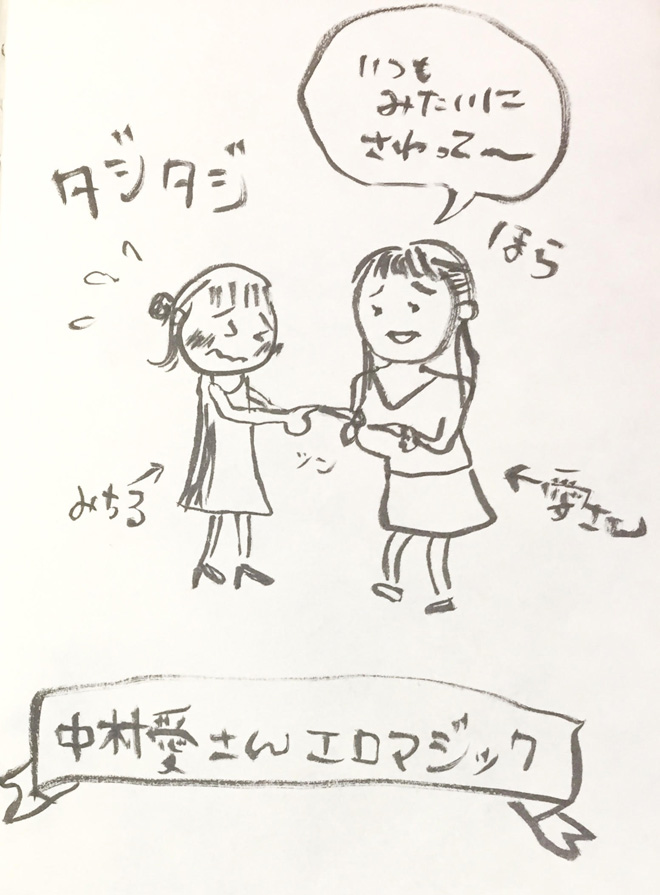 いつも
みたいに
さわって〜
ほら
タジタジ
ツン
みちる
愛さん
中村愛さんエロマジック